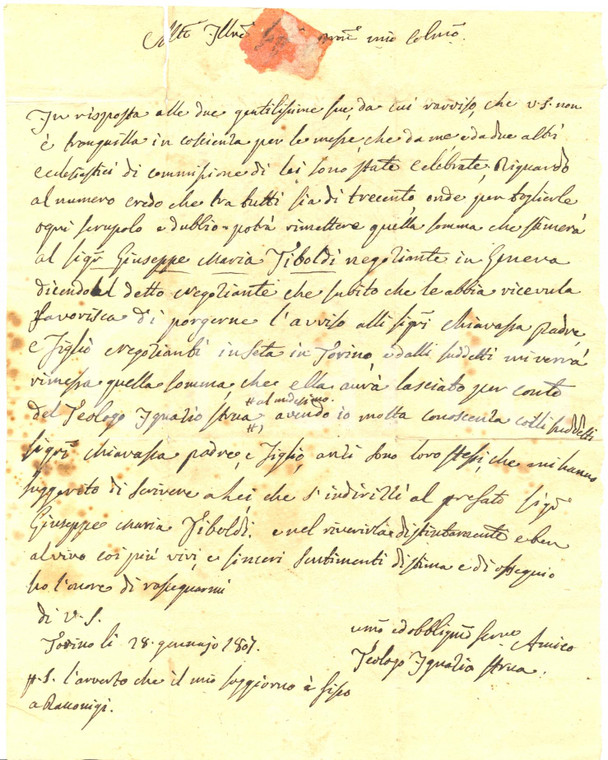 Molto Illre prone mio colmo.
In risposta alle due gentilissime sue, da cui ravviso, che v.s. non
è tranquilla in coscienza per le messe che da me, e da due altri
ecclesiastici di commissione di lei sono state celebrate. Riguardo
al numero credo che tra tutti sia di trecento onde per togliere
ogni scrupolo e dubbio potrà rimettere quella somma che stimerà
al sigr Giuseppe Maria Tiboldi negoziante in Geneva
dicendo al detto negoziante che subito che le abbia ricevuta
favorisca di porgerne l'avviso alli sigri Chiavassa padre,
e figlio negozianti in seta in Torino, e dalli suddetti mi verrà
rimessa quella somma, che ella avrà lasciato per conto
del Teologo Ignazio Strua # avendo io molta conoscenza colli suddetti
# al medesimo.
sigri Chiavassa padre, e figlio, anzi sono loro stessi, che mi hanno
suggerito di scrivere a Lei che s'indirizzi al prefato sigr
Giuseppe Maria Tiboldi. e nel riverirla distintamente e ben
al vivo coi più vivi, e sinceri sentimenti di stima e di ossequio
ho l'onore di rassegnarmi
di V.S.
Torino li 28. gennajo 1801.
umo ed obbligmo servo Amico
Teologo Ignazio Strua
P.S. l'averto che il mio soggiorno è fisso
a Racconigi.